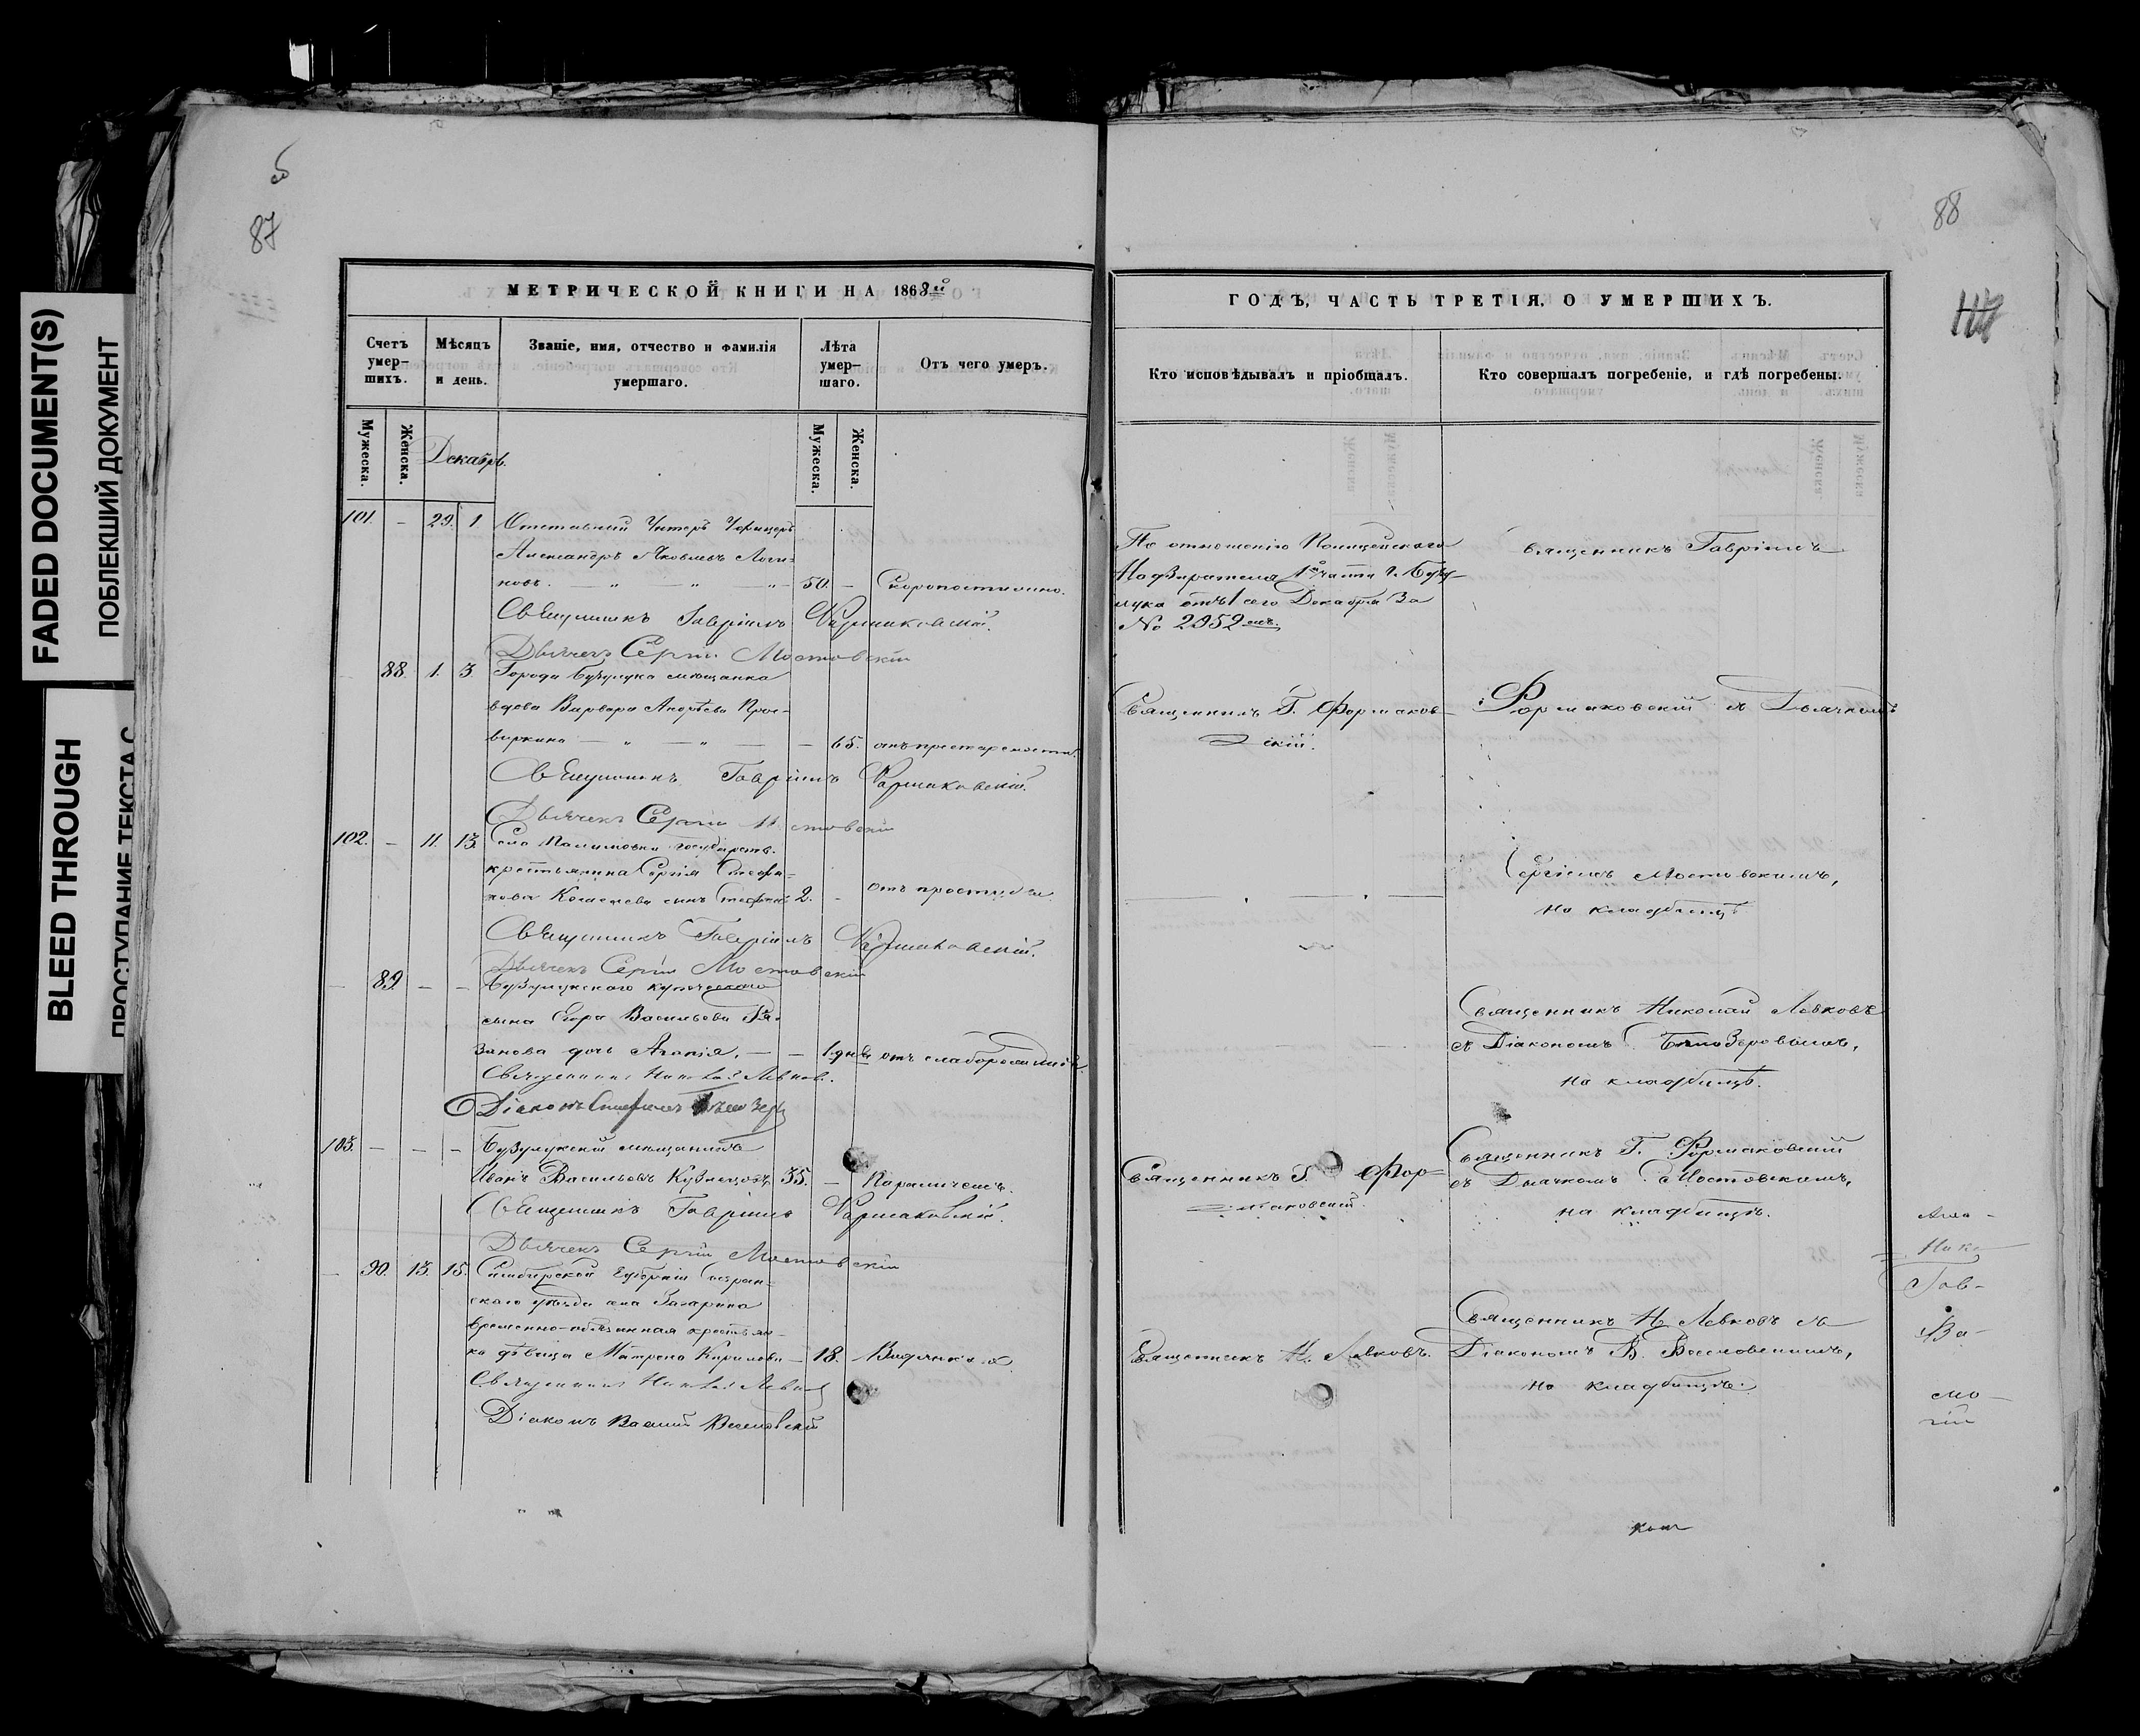 FADED DOCUMENT(S)
ПОБЛЕКШИЙ ДОКУМЕНТ
BLEED THROUGH
ПРОСТУПАНИЕ ТЕКСТА С
87
МЕТРИЧЕСКОЙ КНИГИ НА 1868й
Счетъ умерших.
Мѣсяцъ и день.
Званіе, имя, отчество и фамилія умершаго.
Лѣта умершаго.
Отъ чего умеръ.
Мужеска.
Женска.
Декабрь.
Мужеска.
Женска.
101. — 29. 1 Отставный Унтеръ Офицеръ
Александръ Яковлевъ Логи-
новъ. — „ — „ „ — 50. — Скоропостижно.
Священникъ Гавріилъ Формаковскій.
Дьячекъ Сергій Мостовскій
88. 1. 3. Города Бузулука мѣщанка
вдова Варвара Андрѣева Прос-
виркина — „ — „ — — 65. отъ престарелости.
Священникъ Гавріилъ Формаковскій.
Дьячекъ Сергій Мостовскій
102. — 11. 13. Села Палимовки государств.
крестьянина Сергія Стефа-
нова сынъ Стефанъ 2. — отъ простуды.
Священникъ Гавріилъ Формаковскій.
Дьячекъ Сергій Мостовскій
— 89. — — Бузулукского купеческаго
сына Егора Васильева Ря-
занова дочь Агапія. — — 1. дня отъ слаборожденія.
Священникъ Николай Левковъ.
Діаконъ Стефанъ
103. — — — Бузулукскій мѣщанинъ
Иванъ Васильевъ Кузнецовъ 35. — Параличемъ.
Священникъ Гавріилъ Формаковскій.
Дьячекъ Сергій Мостовскій
— 90. 13. 15. Симбирской Губерніи Сызран-
скаго уѣзда села
временно-обязанная крестьян-
ка дѣвица Матрена Кирилова — 18.
Священникъ Николай Левковъ
Діаконъ Василий
88
117
ГОДЪ, ЧАСТЬ ТРЕТІЯ, О УМЕРШИХЪ.
Кто исповѣдывалъ и пріобщалъ.
Кто совершалъ погребеніе, и гдѣ погребены.
По отношенію Полицейскаго
Надзирателя 1й части г. Бузу-
лука отъ 1 сего Декабря за
№ 2952мъ.
Священникъ Гавріилъ
Священникъ Г. Формаков-
скій.
Формаковскій съ Дьячкомъ
Сергіемъ Мостовскимъ,
на кладбищѣ
Священникъ Николай Левковъ
съ Діакономъ С. Бѣлозеровымъ,
на кладбищѣ.
Священникъ Г. Фор-
маковскій.
Священникъ Г. Формаковскій
съ Дьячкомъ С. Мостовскимъ,
на кладбищѣ.
Священникъ Н. Левковъ.
Священникъ Н. Левковъ съ
Діакономъ В.
на кладбищѣ.
Гав-
Ва-
мо-
гій